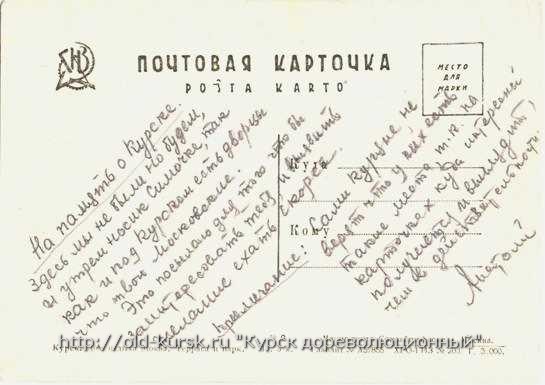 ПОЧТОВАЯ КАРТОЧКА
POŜTA KARTO
МЕСТО
ДЛЯ
МАРКИ
Куда
Кому
На память о Курске.
Здесь мы не были но будем,
и утрем носик Симочке, так
как и под Курском есть дворцы
что твои московские.
Это посылаю для того что бы
заинтересовать тебя и выявить
желание ехать скорее.
Примечание: Сами куряне не
верят что у них есть
такие места т.к. на
карточках куда интересней
получается и выглядит,
чем в действительности.
Анатолий
http://old-kursk.ru "Курск дореволюционный"